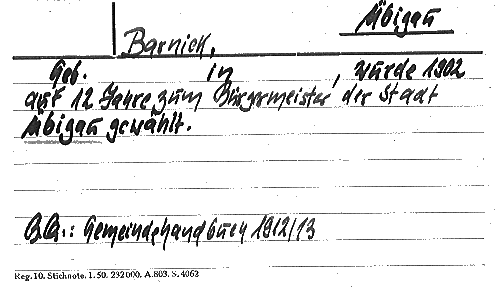 Übigau
Barnick,
Geb. in , wurde 1902
auf 12 Jahre zum Bürgermeister der Stadt
Übigau gewählt.
B.A.: Gemeindehandbuch 1912/13
Reg. 10. Stichnote. 1. 50. 232 000. A. 803. S. 4062